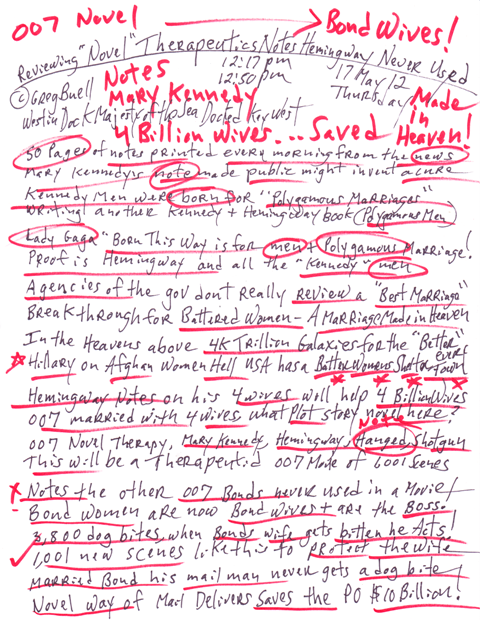 007 Novel → Bond Wives!
Reviewing "Novel" Therapeutics Notes Hemingway Never Used
12:17 pm
12:50 pm
17 May 12
Thursday
Notes
© Greg Buell
Mary Kennedy
Made in Heaven!
Westin Dock Majesty of the Sea Docked Key West
4 Billion Wives... Saved
50 Pages of notes printed every morning from the news
Mary Kennedy's note made public might invent a cure
Kennedy Men were born for "Polygamous Marriages"
writing another Kennedy + Hemingway Book (Polygamous Men)
Lady Gaga "Born This Way is for men + Polygamous Marriage!
Proof is Hemingway and all the "Kennedy" men
Agencies of the gov don't really review a "Best Marriage"
Breakthrough for Battered Women - A Marriage Made in Heaven
In the Heavens above 4K Trillion Galaxies for the "Better"
Hillary on Afghan Women Hell USA has a Batter Womens Shelter every town
Hemingway Notes on his 4 wives will help 4 Billion Wives
007 married with 4 wives what Plot story novel here?
Note
007 Novel Therapy, Mary Kennedy, Hemingway, Hanged, Shotgun
This will be a Therapeutid 007 Movie of 1,001 Scenes
Notes the other 007 Bonds never used in a Movie!
Bond women are now Bond Wives + are the Boss.
3,800 dog bites, when Bonds wife gets bitten he Acts!
1,001 new scenes like this to protect the wife
Married Bond his mail man never gets a dog bite
Novel way of Mail Delivers Saves the PO $10 Billion!